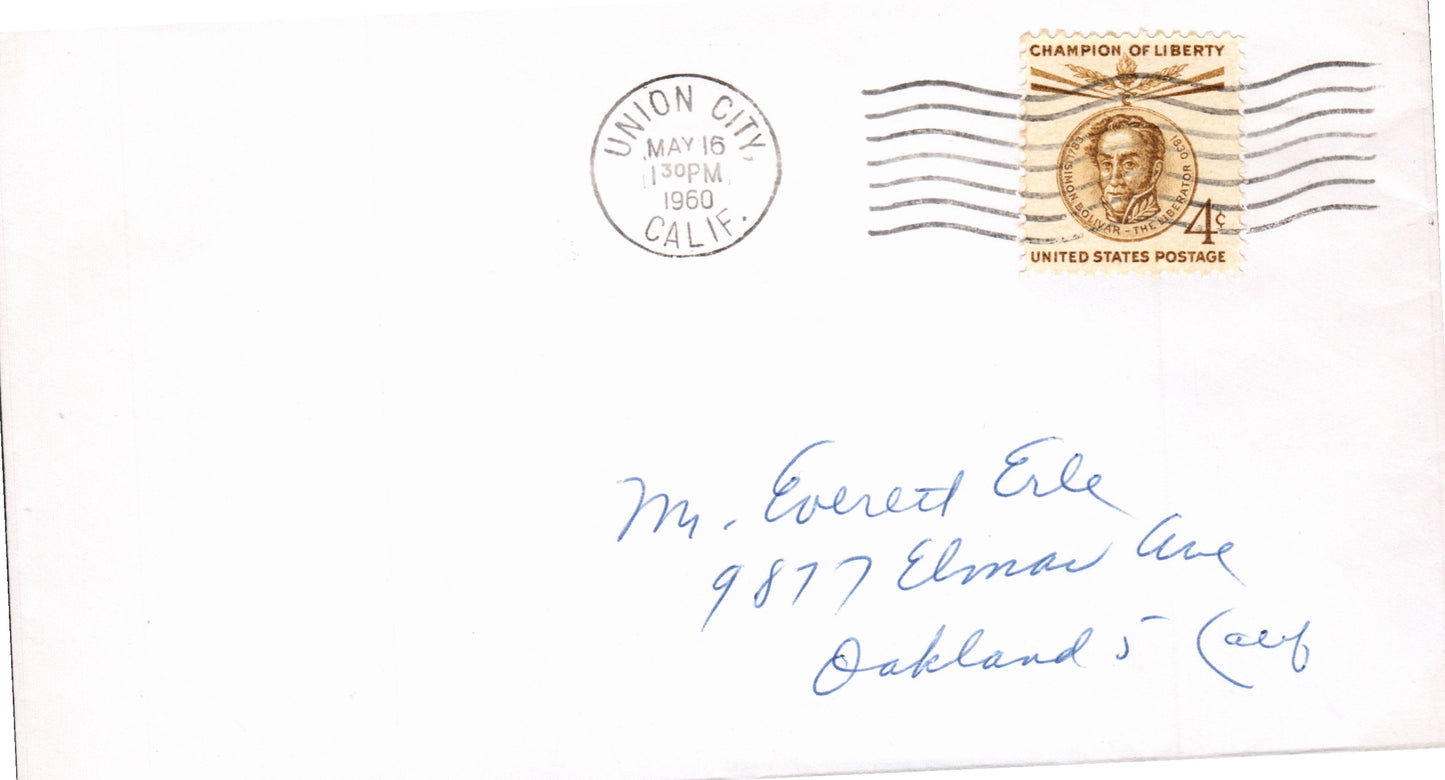 UNION CITY,
MAY 16
1 30 PM
1960
CALIF.
CHAMPION OF LIBERTY
1783 SIMON BOLIVAR - THE LIBERATOR 1830
4¢
UNITED STATES POSTAGE
Mr. Everett Erle
9877 Elmar Ave
Oakland 5 Calif